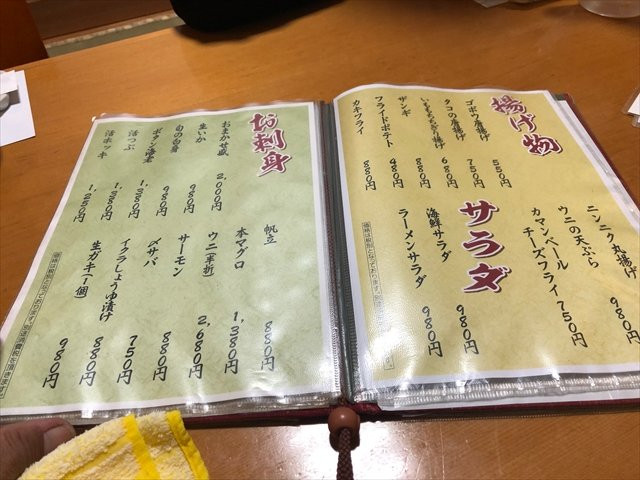 揚げ物
ゴボウ唐揚げ 550円
タコの唐揚げ 750円
いももちもち揚げ 680円
ザンギ 980円
フライドポテト 480円
カキフライ 880円
ニンニク丸揚げ
ウニの天ぷら 980円
カマンベール
チーズフライ 750円
サラダ
海鮮サラダ 980円
ラーメンサラダ 980円
お刺身
おまかせ盛 2,000円
生いか 980円
旬の白身 980円
ボタン海老 1,380円
活つぶ 1,380円
活ホッキ 1,250円
帆立 880円
本マグロ 1,380円
ウニ(半折) 2,680円
サーモン 880円
〆サバ 750円
イクラしょうゆ漬け 880円
生ガキ(1個) 980円